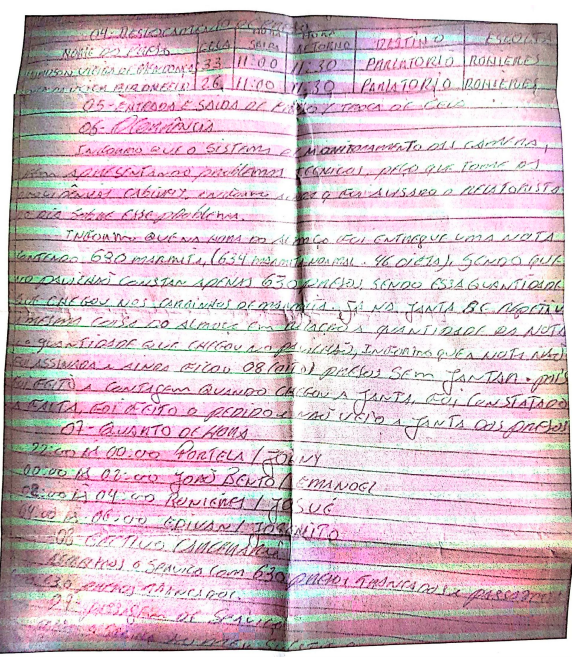 04- DESLOCAMENTO DE PRESO
NOME DO PRESO CELA HORA SAIDA HORA RETORNO DESTINO ESCOLTA
VIEIRA DE MENDONÇA 33 11:00 11:30 PARLATORIO RONIERES
26 11:00 11:30 PARLATORIO RONIERES
05- ENTRADA E SAIDA DE PRESO / TROCA DE CELA
06- OCORRÊNCIA
INFORMO QUE O SISTEMA DE MONITORAMENTO DAS CAMERA,
VEM APRESENTANDO PROBLEMAS TÉCNICOS, PEÇO QUE TOME AS
CABIVEIS, FOI AVISADO O RELATORISTA
DO DIA SOBRE ESSE PROBLEMA.
INFORMO QUE NA HORA DO ALMOÇO FOI ENTREGUE UMA NOTA
CONTENDO 680 MARMITA, (634 MARMITA NORMAL. 46 DIETA), SENDO QUE
NO PAVILHÃO CONSTAN APENAS 630 PRESOS, SENDO ESSA QUANTIDADE
QUE CHEGOU NOS CARRINHOS DE MARMITA. JÁ NA JANTA SE REPETIU
MESMA COISA DO ALMOÇO EM RELAÇÃO A QUANTIDADE DA NOTA
QUANTIDADE QUE CHEGOU NO PAVILHÃO), INFORMO QUE A NOTA NÃO
ASSINADA E AINDA FICOU 08 (OITO) PRESOS SEM JANTAR. POIS
FOI FEITO A CONTAGEM QUANDO CHEGOU A JANTA, FOI CONSTATADO
A FALTA, FOI FEITO O PEDIDO E NÃO VEIO A JANTA DOS PRESOS
07- QUARTO DE HORA
22:00 ÀS 00:00 PORTELA / JORNY
00:00 ÀS 02:00 JOÃO BENTO / EMANOEL
02:00 ÀS 04:00 RONIERES / JOSUÉ
04:00 ÀS 06:00 EDIVAN /
08- EFETIVO CARCERÁRIO
O SERVIÇO COM 630 PRESOS TRANCADOS E PASSAREMOS
630 PRESOS TRANCADOS.
PASSAGEM DE SERVIÇO